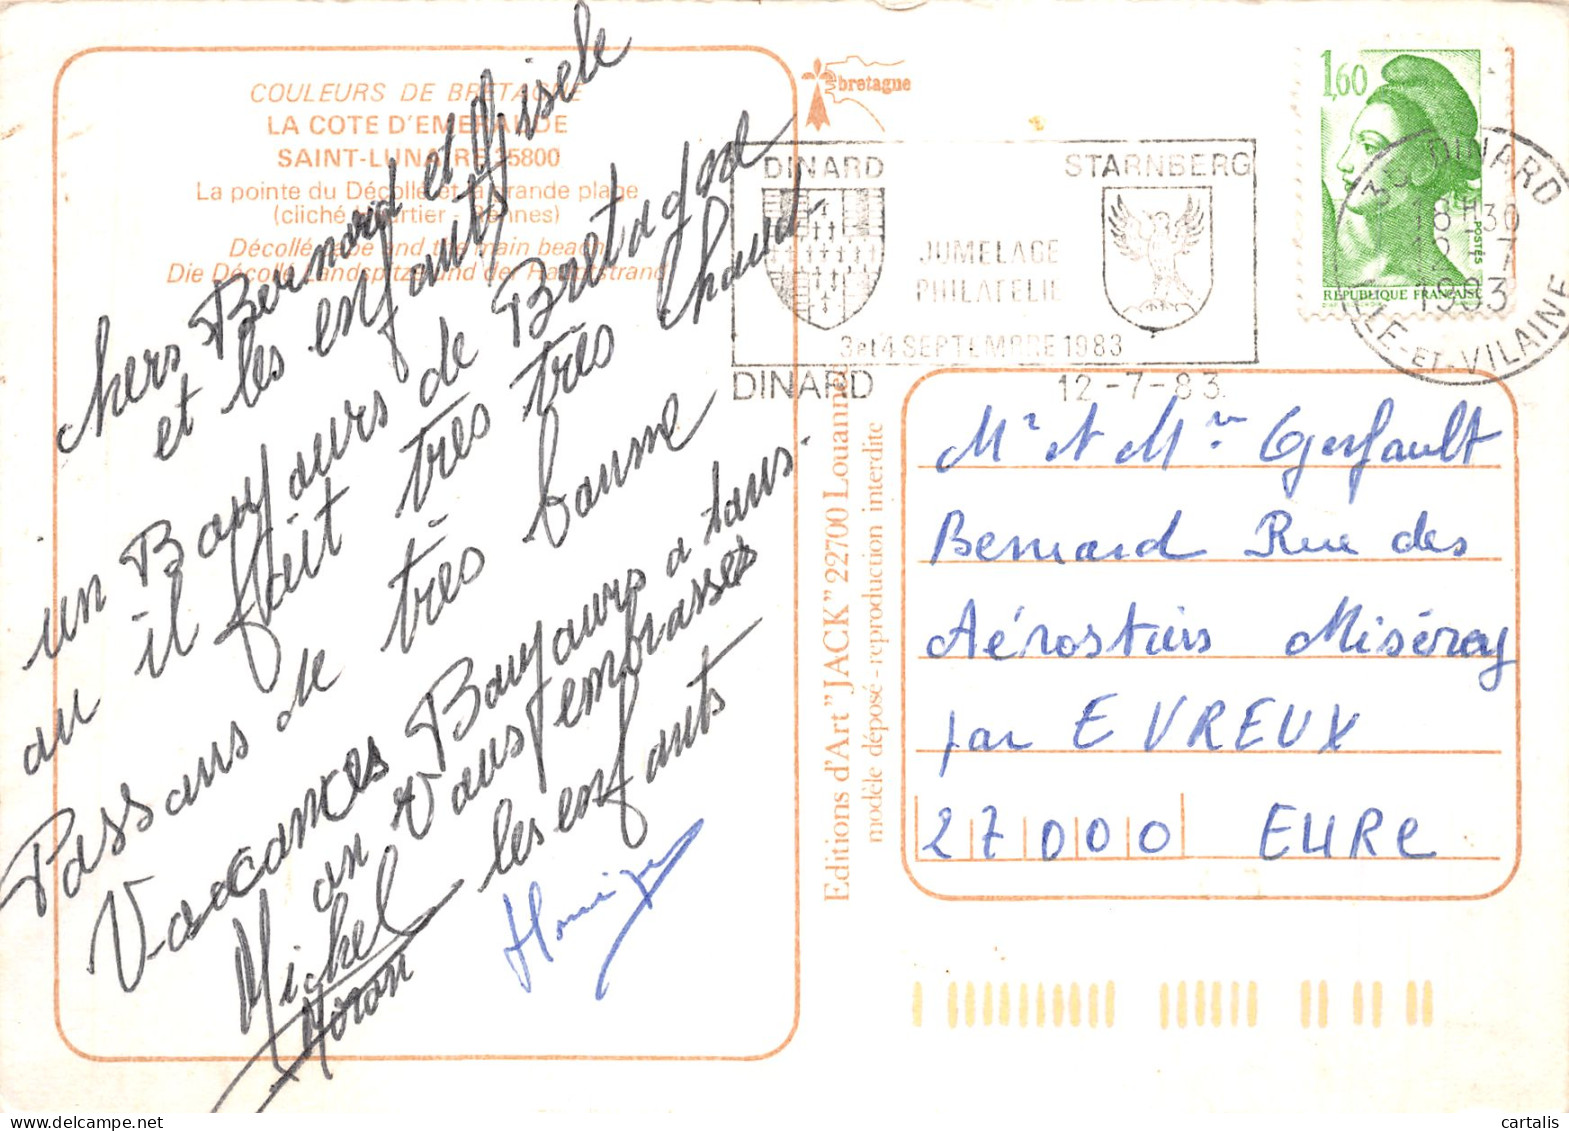 COULEURS DE BRETAGNE
LA COTE D'EMERAUDE
SAINT-LUNAIRE 35800
La pointe du Décollé et la grande plage
(cliché - Rennes)
Décollé cape and the main beach
Die Décollé Landspitze und der Hauptstrand
chers Bernard et Gisele
et les enfants
un Bonjours de Bretagne
ou il fait très très chaud
Passons de très bonne
Vacances Bonjours a tous.
on vous embrasses
Michel les enfants
Monique
bretagne
DINARD STARNBERG
JUMELAGE
PHILATELIE
3et4 SEPTEMBRE 1983
DINARD 12-7-83
1,60
POSTES
REPUBLIQUE FRANCAISE
35 DINARD
18H30
12-7
1983
ILLE-ET-VILAINE
Editions d'Art "JACK" 22700 Louannec
modèle déposé - reproduction interdite
Mr et Mme Gerfault
Bernard Rue des
Aérostiers Miséray
par EVREUX
27000 EURE
cartalis